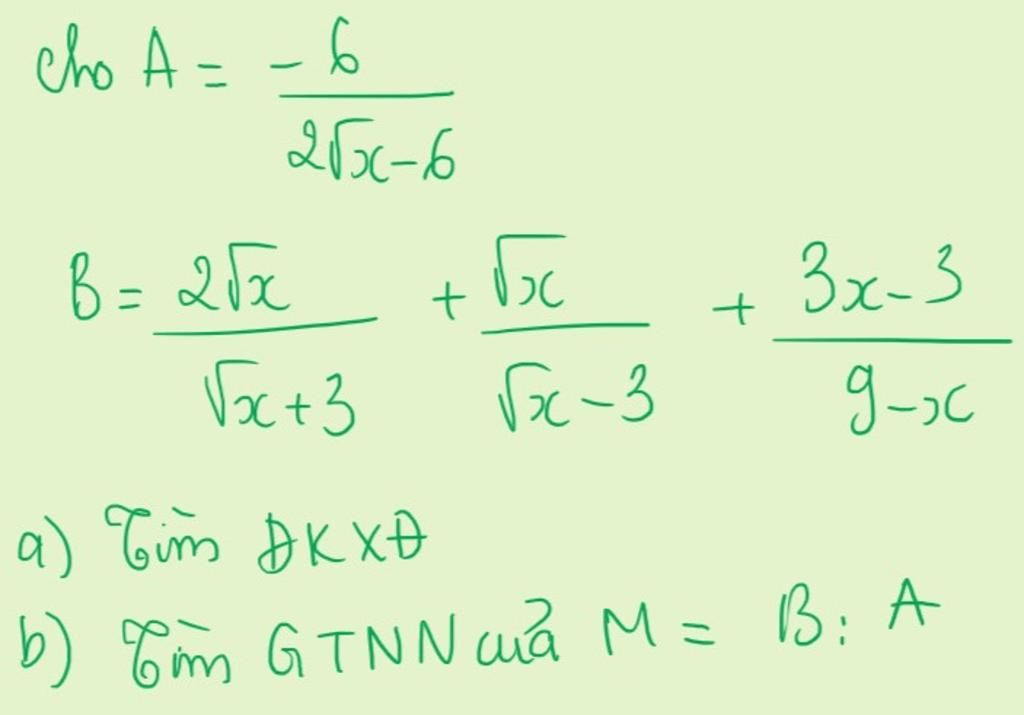 cho A = -6/(2√x-6)
B = 2√x/(√x+3) + √x/(√x-3) + (3x-3)/(9-x)
a) Tìm ĐKXĐ
b) Tìm GTNN của M = B : A